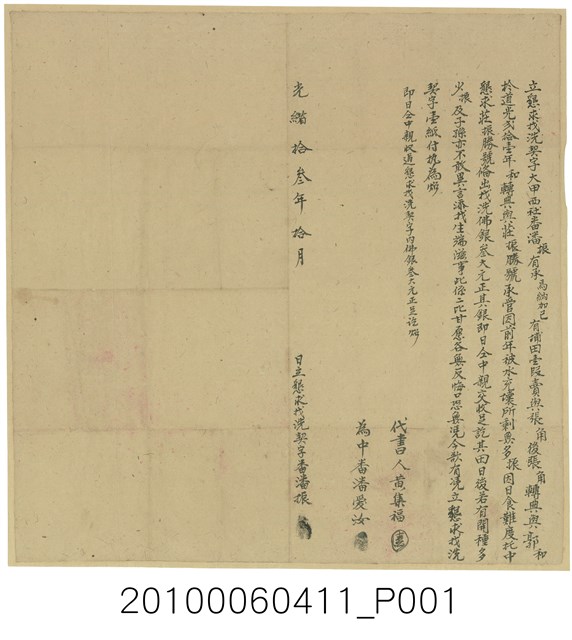 立懇求找洗契字大甲西社番潘振有承爲納加已有埔田壹段賣與張角後張角轉典與郭和
於道光貳拾壹年和轉典與莊振勝號承管因前年被水充壞所剩無多振因日食難度托中
懇求莊振勝號備出找洗佛銀叁大元正其銀即日仝中親交收足訖其田日後若有開種多
少振及子孫亦不敢異言添找生端滋事此係二比甘愿各無反悔口恐無凭今欲有凭立懇求找洗
契字壹紙付執為炤
即日仝中親收過懇求找洗契字內佛銀叁大元正足訖炤
代書人黃集福
為中番潘愛汝
光緒拾叁年拾月 日立懇求找洗契字番潘振
20100060411_P001